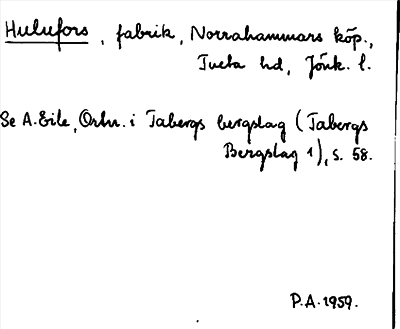 Hulufors, fabrik, Norrahammars köp.,
Tveta hd, Jönk. l.
Se A. Eile, Ortn. i Tabergs bergslag (Tabergs
Bergslag 1), s. 58.
P.A. 1959.